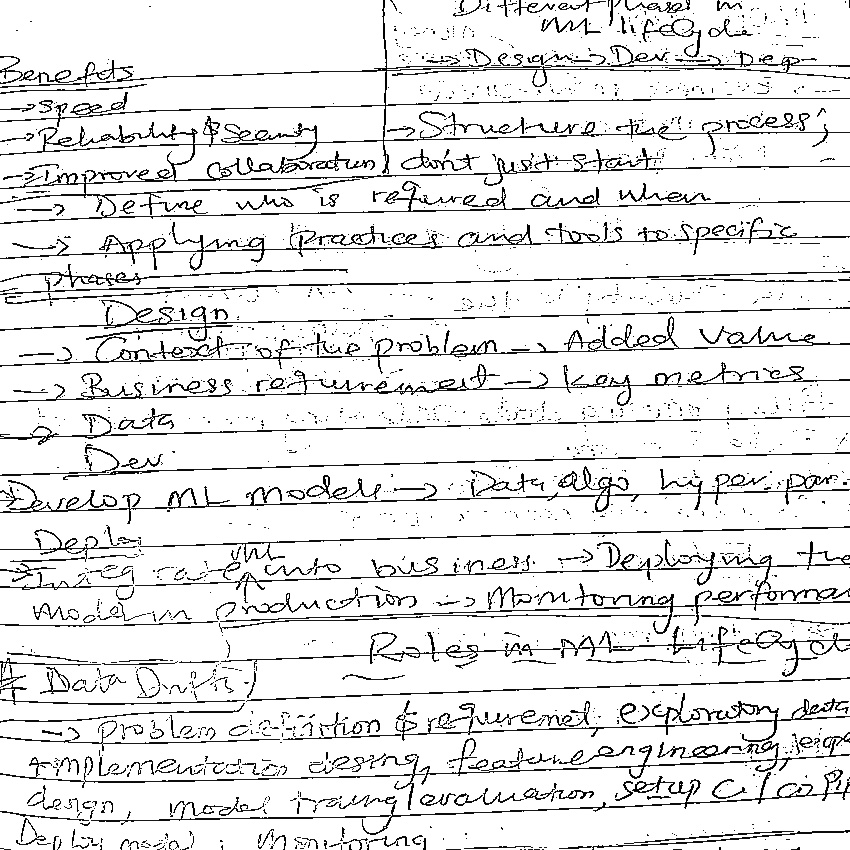 Different phases in
ML lifeCycle
→ Design → Dev → Dep
Benefits
→ Speed
→ Reliability & Security
→ Improved collaboration
→ Structure the process;
don't just start
→ Define who is required and when
→ Applying practices and tools to specific
phases
Design
→ Context of the problem → Added Value
→ Business requirement → Key metrics
→ Data
Dev
→ Develop ML models → Data, algo, hyper. par.
Deploy
→ Integrate ML into business → Deploying the
model in production → Monitoring performan
Roles in ML LifeCycl
# Data Drift
→ problem definition & requiremet, exploratory data
implementation desing, feature engineering,
design, model traing/evaluation, setup CI/CD Pi
Deploy model; Monitoring